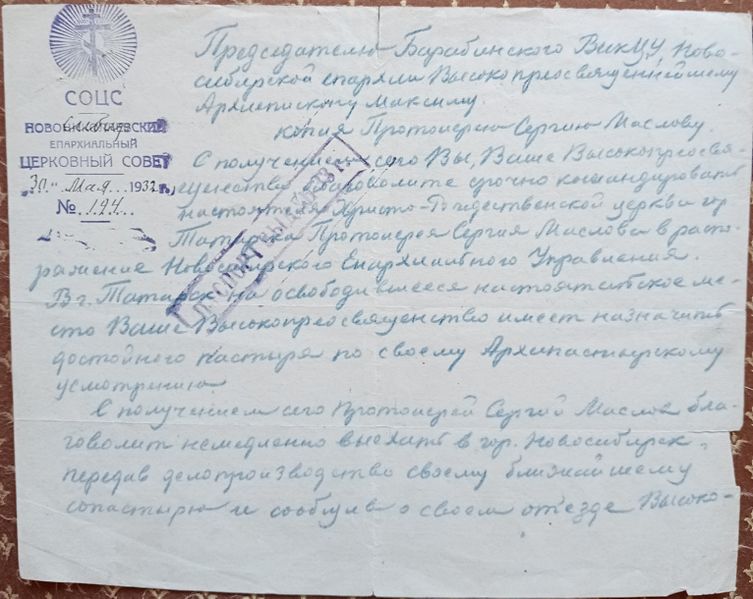 СОЦС
НОВОНИКОЛАЕВСКИЙ
Сибирский
ЕПАРХИАЛЬНЫЙ
ЦЕРКОВНЫЙ СОВЕТ
"30" Мая 1932 г.
№ 194
Председателю Барабинского ВикЦУ, Ново-
сибирской епархии Высокопреосвященнейшему
Архиепископу Максиму.
копия Протоиерею Сергию Маслову.
С получением сего Вы, Ваше Высокопреосвя-
щенство благоволите срочно командировать
настоятеля Христо-Рождественской церкви гор
Татарска Протоиерея Сергия Маслова в распо-
ряжение Новосибирского Епархиального Управления.
В г. Татарск на освободившееся настоятельское ме-
сто Ваше Высокопреосвященство имеет назначить
достойного пастыря по своему Архипастырскому
усмотрению
С получением сего Протоиерей Сергий Маслов бла-
говолит немедленно выехать в гор. Новосибирск,
передав делопроизводство своему ближайшему
сопастырю и сообщив о своем от'езде Высоко-